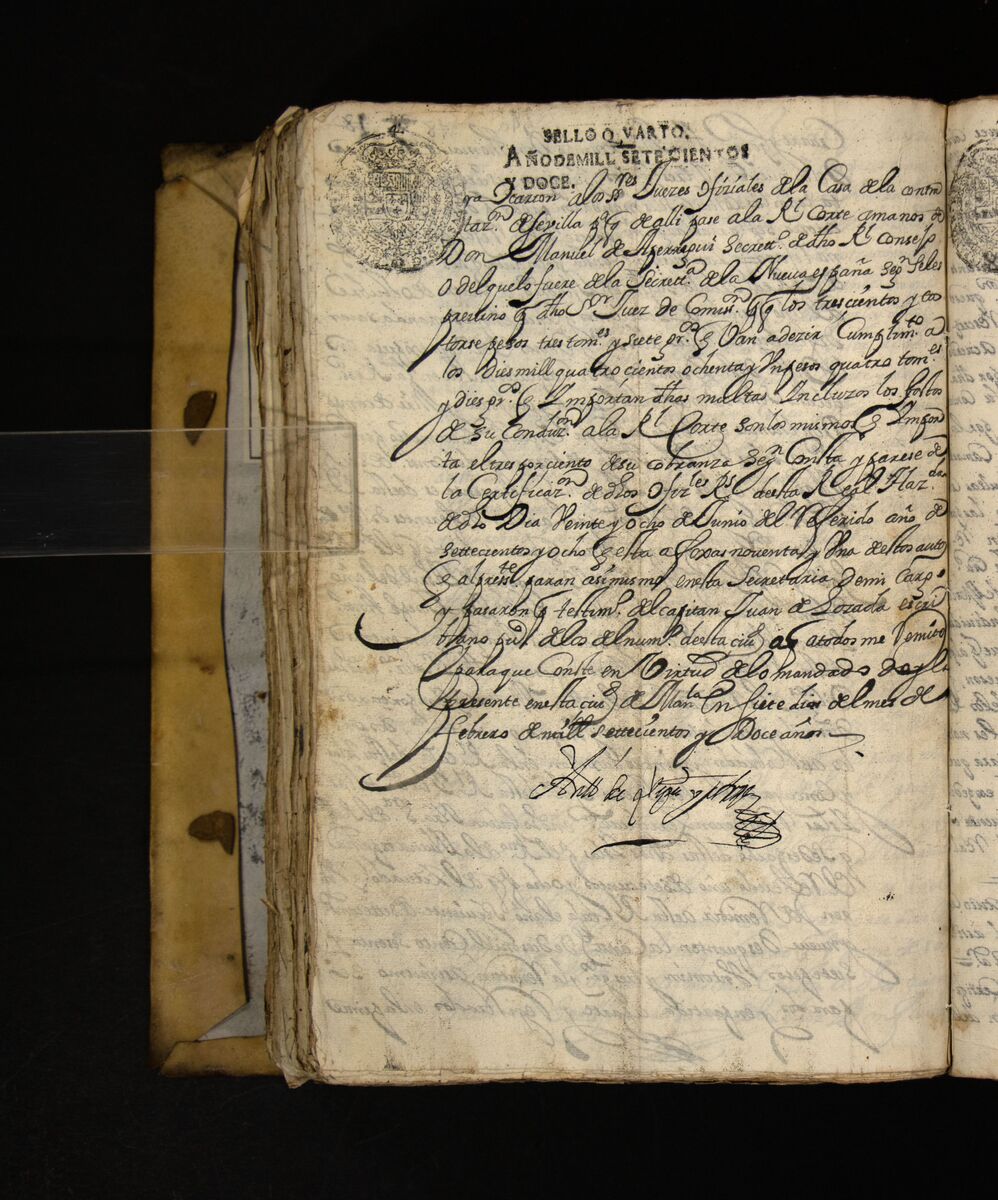 SELLO QVARTO.
AÑO DE MILL SETECIENTOS
Y DOCE.
ocacion a los Sres Juezes ofiziales de la Casa de la contra
tazn. de Sevilla pa. q de alli pase a la Rl Corte a manos de
Don Manuel de Aperregui Secretto. de dho Rl Consejo
o del que lo fuere de la Secreta. de la Nueva españa segn. se les
previno dho Sor Juez de Comissn. y q los trescientos y cator
torse pesos tres tomes. y siete gros. q Van a dezir Cumplimto. a
los Diesmill quatrocientos ochenta y Un pesos quatro tomes
y dies gros. q Importan dhas multas Incluzos los Costos
de su Conduzon. a la Rl Corte son los mismos q Impor
ta el tres por ciento de su cobranza segn. Consta y parese de
la Certificazon. de dhos ofizles Rs desta Real Hazda.
de dho Dia Veinte y ocho de Junio del Referido año de
settecientos y ocho q esta a foxas noventa y Una destos autos
q al presste paran asimismo en esta Secretaria de mi Cargo
y pasaron testimo. del capitan Juan de Lozada escri
bano puco. de los del numo. desta ciud a q a todos me Remito
para que Conste en Virtud de lo mandado doy la
Presente en esta ciud de Manla En siete dias del mes de
febrero de mill settecientos y Doce años